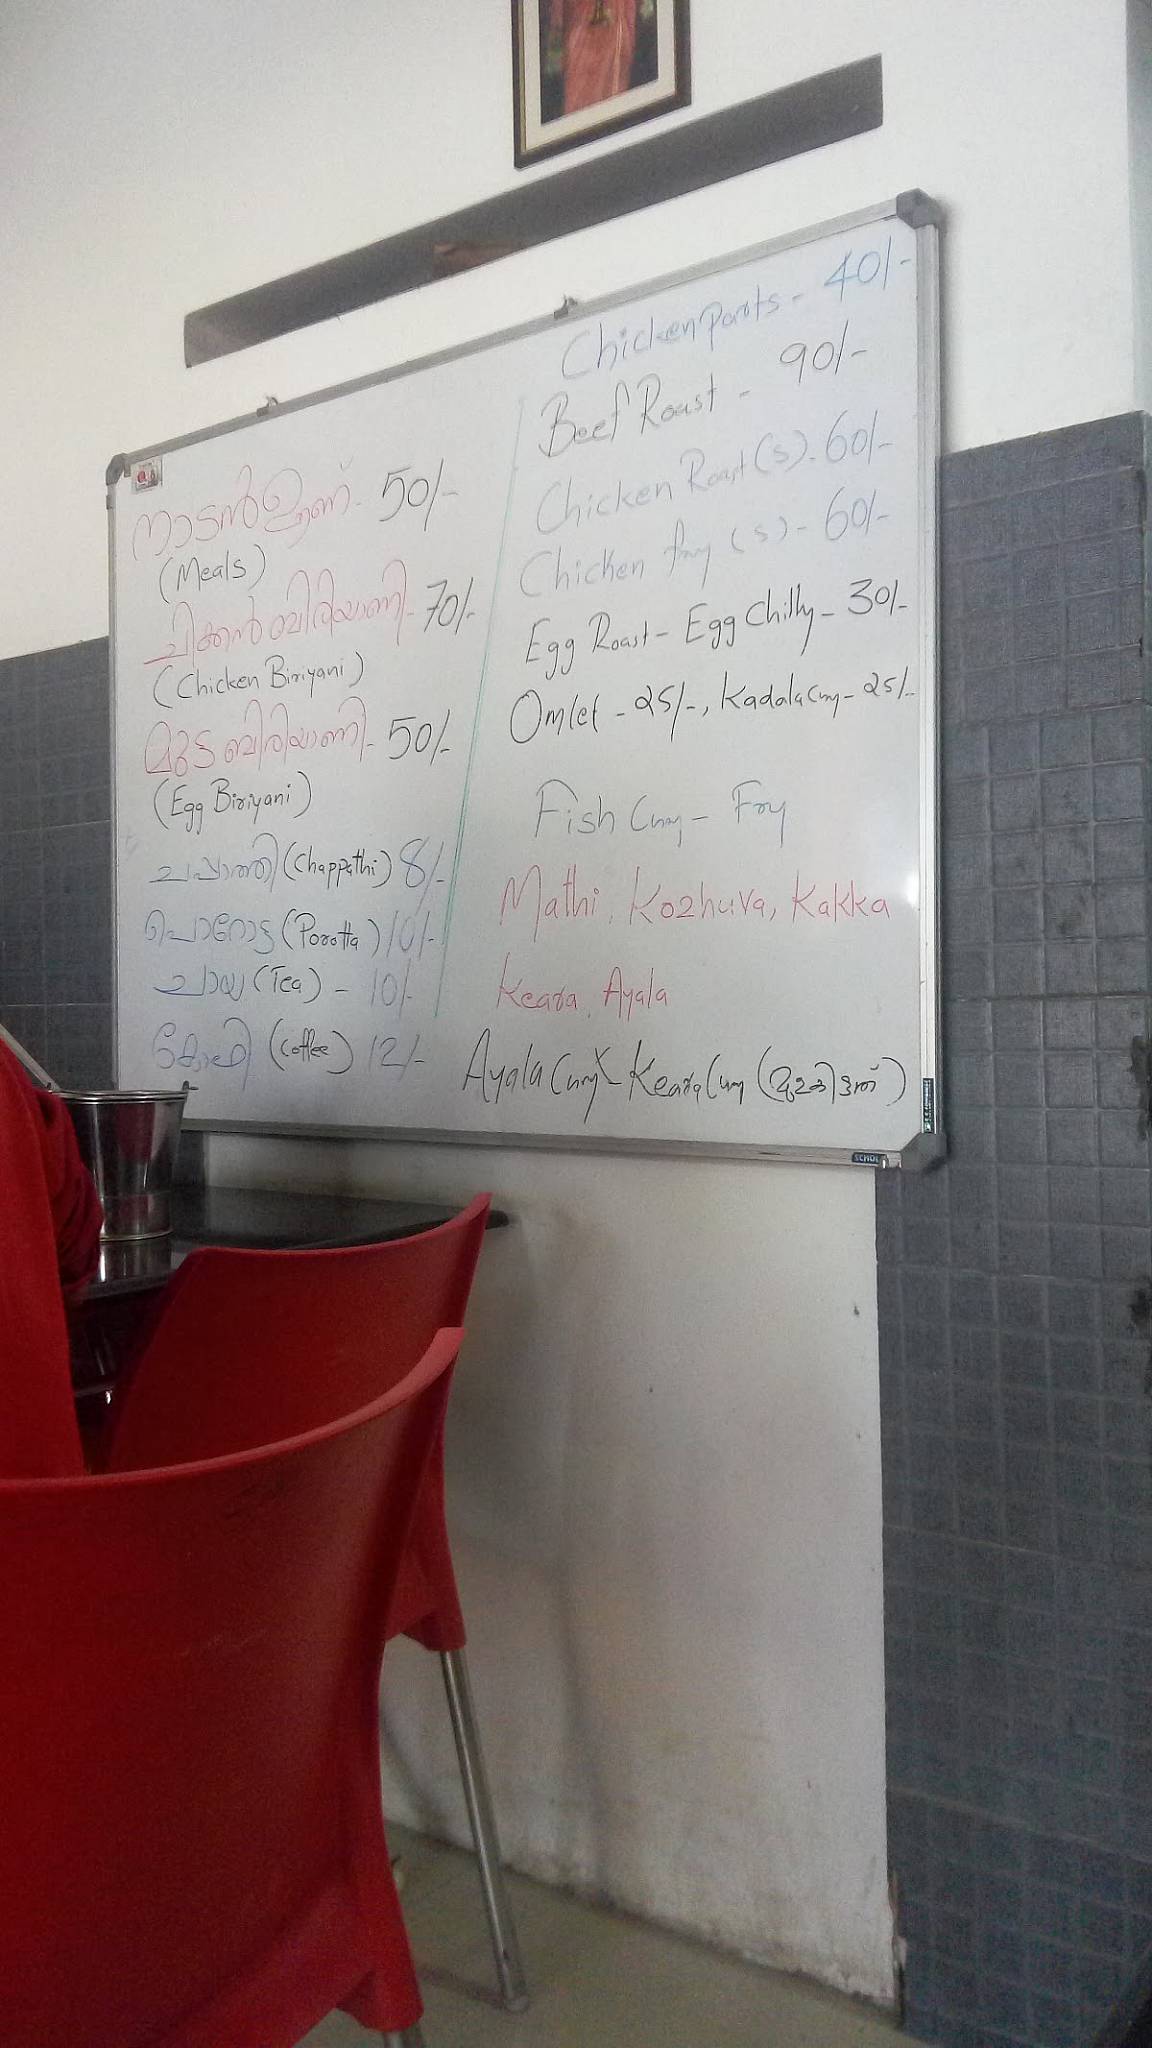 നാടൻ ഊണ് - 50/-
(Meals)
ചിക്കൻ ബിരിയാണി - 70/-
(Chicken Biriyani)
മുട്ട ബിരിയാണി - 50/-
(Egg Biriyani)
ചപ്പാത്തി (Chappathi) 8/-
പൊറോട്ട (Porotta) 10/-
ചായ (Tea) - 10/-
കോഫി (Coffee) 12/-
Chicken Parts - 40/-
Beef Roast - 90/-
Chicken Roast (S) - 60/-
Chicken fry (S) - 60/-
Egg Roast - Egg Chilly - 30/-
Omlet - 25/-, Kadala Curry - 25/-
Fish Curry - Fry
Mathi, Kozhuva, Kakka
Keara, Ayala
Ayala Curry - Keara Curry